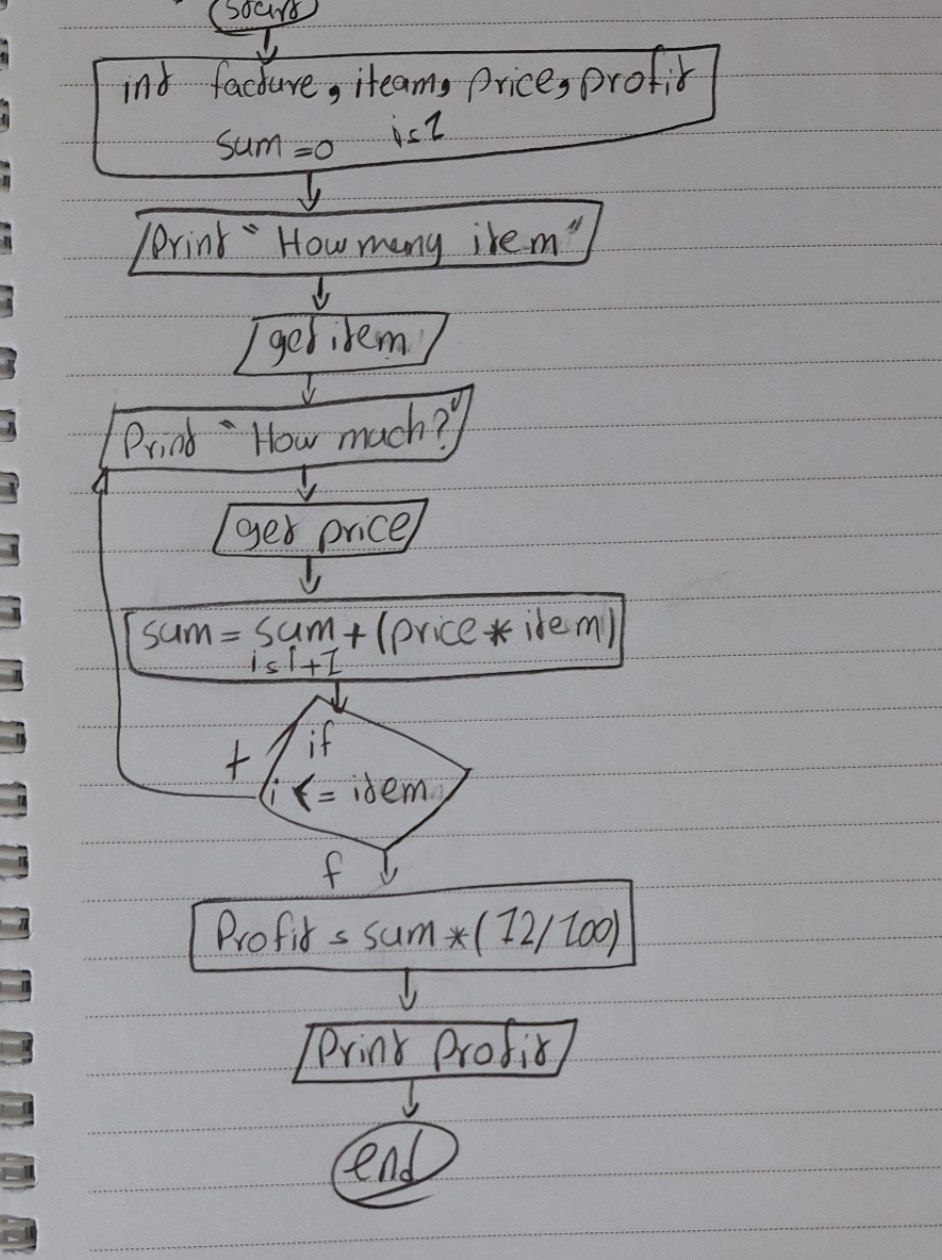 start
int facture, iteam, price, profit
sum=0 i=1
Print "How meny item"
get item
Print "How much?"
get price
sum = sum + (price * item)
i=i+1
if
t
i <= item
f
Profit = sum * (12/100)
Print Profit
end